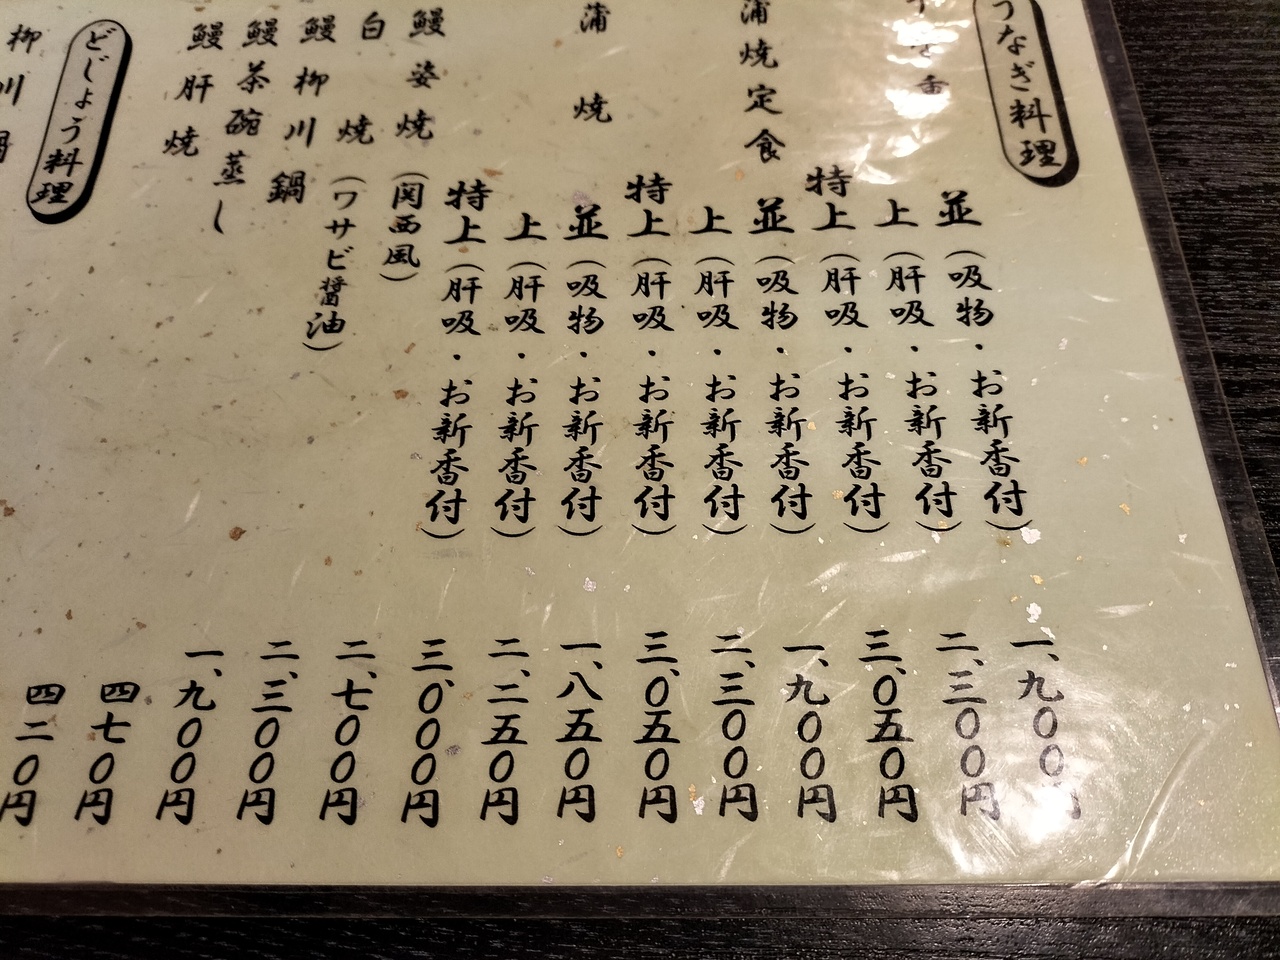 うなぎ料理
重
並（吸物・お新香付）一、九〇〇円
上（肝吸・お新香付）二、三〇〇円
特上（肝吸・お新香付）三、〇五〇円
蒲焼定食
並（吸物・お新香付）一、九〇〇円
上（肝吸・お新香付）二、三〇〇円
特上（肝吸・お新香付）三、〇五〇円
蒲焼
並（吸物・お新香付）一、八五〇円
上（肝吸・お新香付）二、二五〇円
特上（肝吸・お新香付）三、〇〇〇円
鰻姿焼（関西風）二、七〇〇円
白焼（ワサビ醤油）二、三〇〇円
鰻柳川鍋 一、九〇〇円
鰻茶碗蒸し 四七〇円
鰻肝焼 四二〇円
どじょう料理
柳川鍋